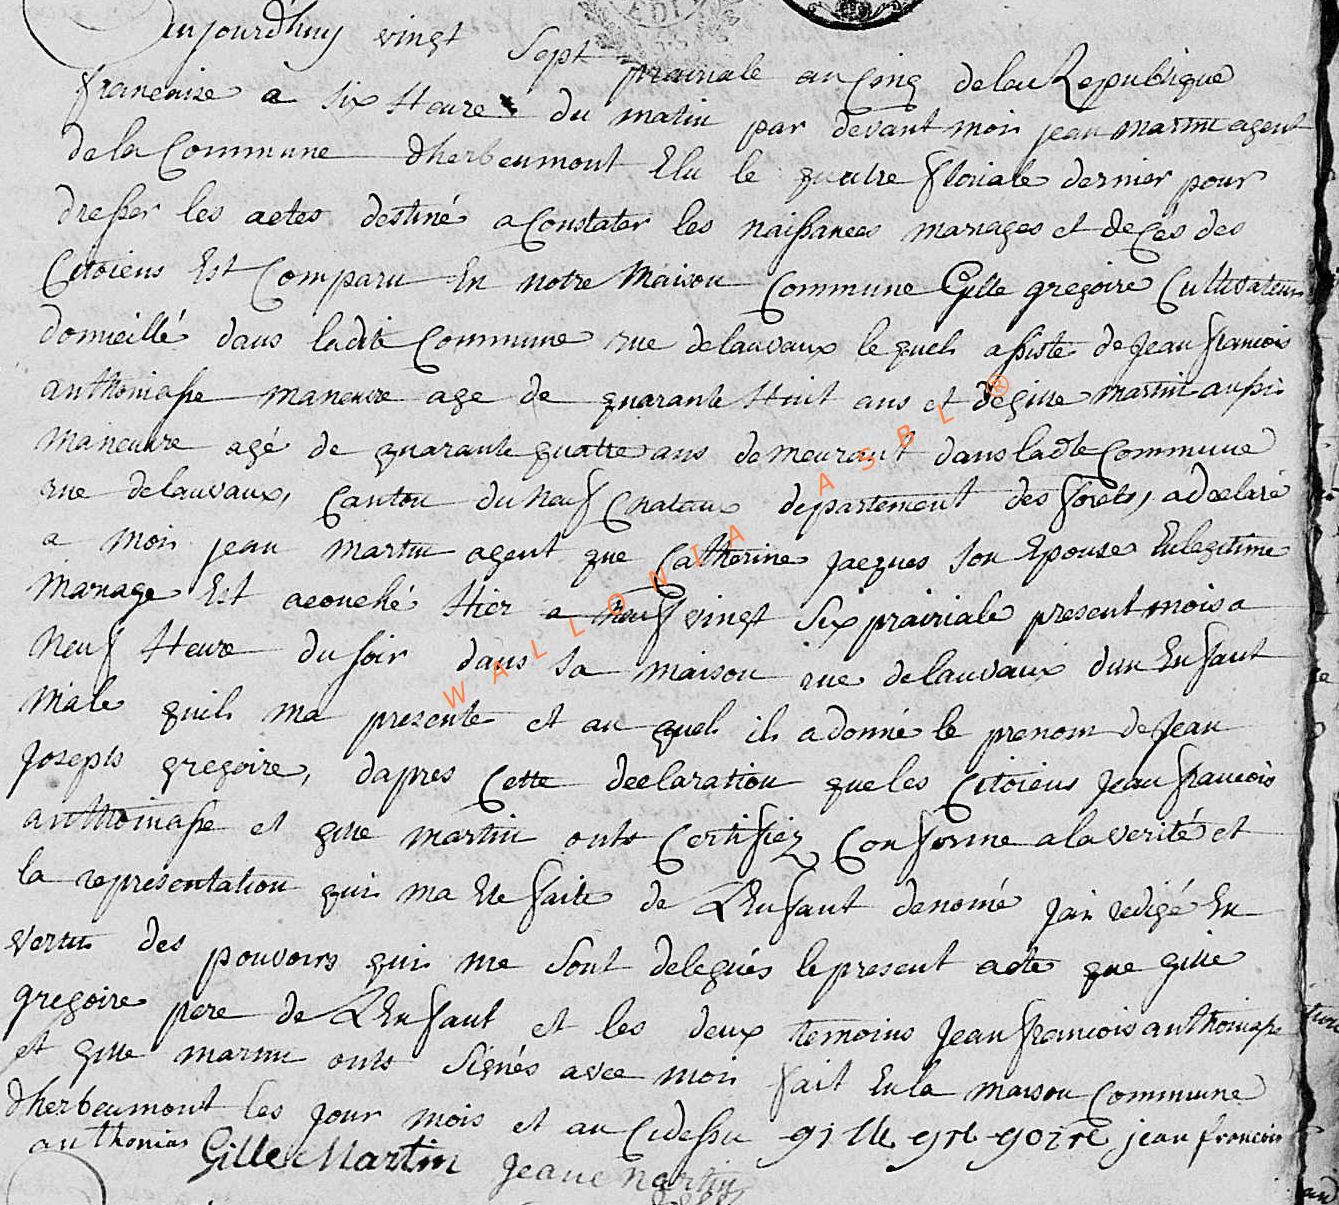 aujourdhuy vingt sept prairiale an Cinq delau Republique
francaise a six Heure du matin par devant moi jean martin agent
dela Commune dherbeumont Elu le quatre floriale dernier pour
dresser les actes destiné a Constater les naissances mariages et deCés des
Citoiens Est Comparu En notre Maison Commune Gille gregoire Cultivateur
domicillé dans ladite Commune rue delauvaux lequel assisté de jean francois
anthoinasse maneuvre age de quarante Huit ans et de gille martin aussi
maneuvre agé de quarante quattre ans demeurant dans ladte Commune
rue delauvaux, Canton du neuf Chateau departement des forets, adeclaré
a moi jean martin agent que Catherine jacques son Epouse En legitime
mariage Est acouché Hier a neuf vingt Six prairiale present mois a
neuf Heure du soir dans sa maison rue delauvaux dun Enfant
male quil ma presenté et au quel il adonné le prenom de jean
joseph gregoire, dapres Cette declaration que les Citoiens jean francois
anthoinasse et gille martin onts Certifiez Conforme ala verité et
la representation qui ma Ete faite de LEnfant denomé jai redigé En
vertu des pouvoirs qui me sont delegués lepresent acte que gille
gregoire pere de LEnfant et les deux temoins jean francois anthoinasse
et gille martin onts signés avec moi fait En la maison Commune
dherbeumont les jour mois et an Cidessu gille gregoire jean francois
anthoinas Gille Martin Jean martin
WALLONIA ASBL ®